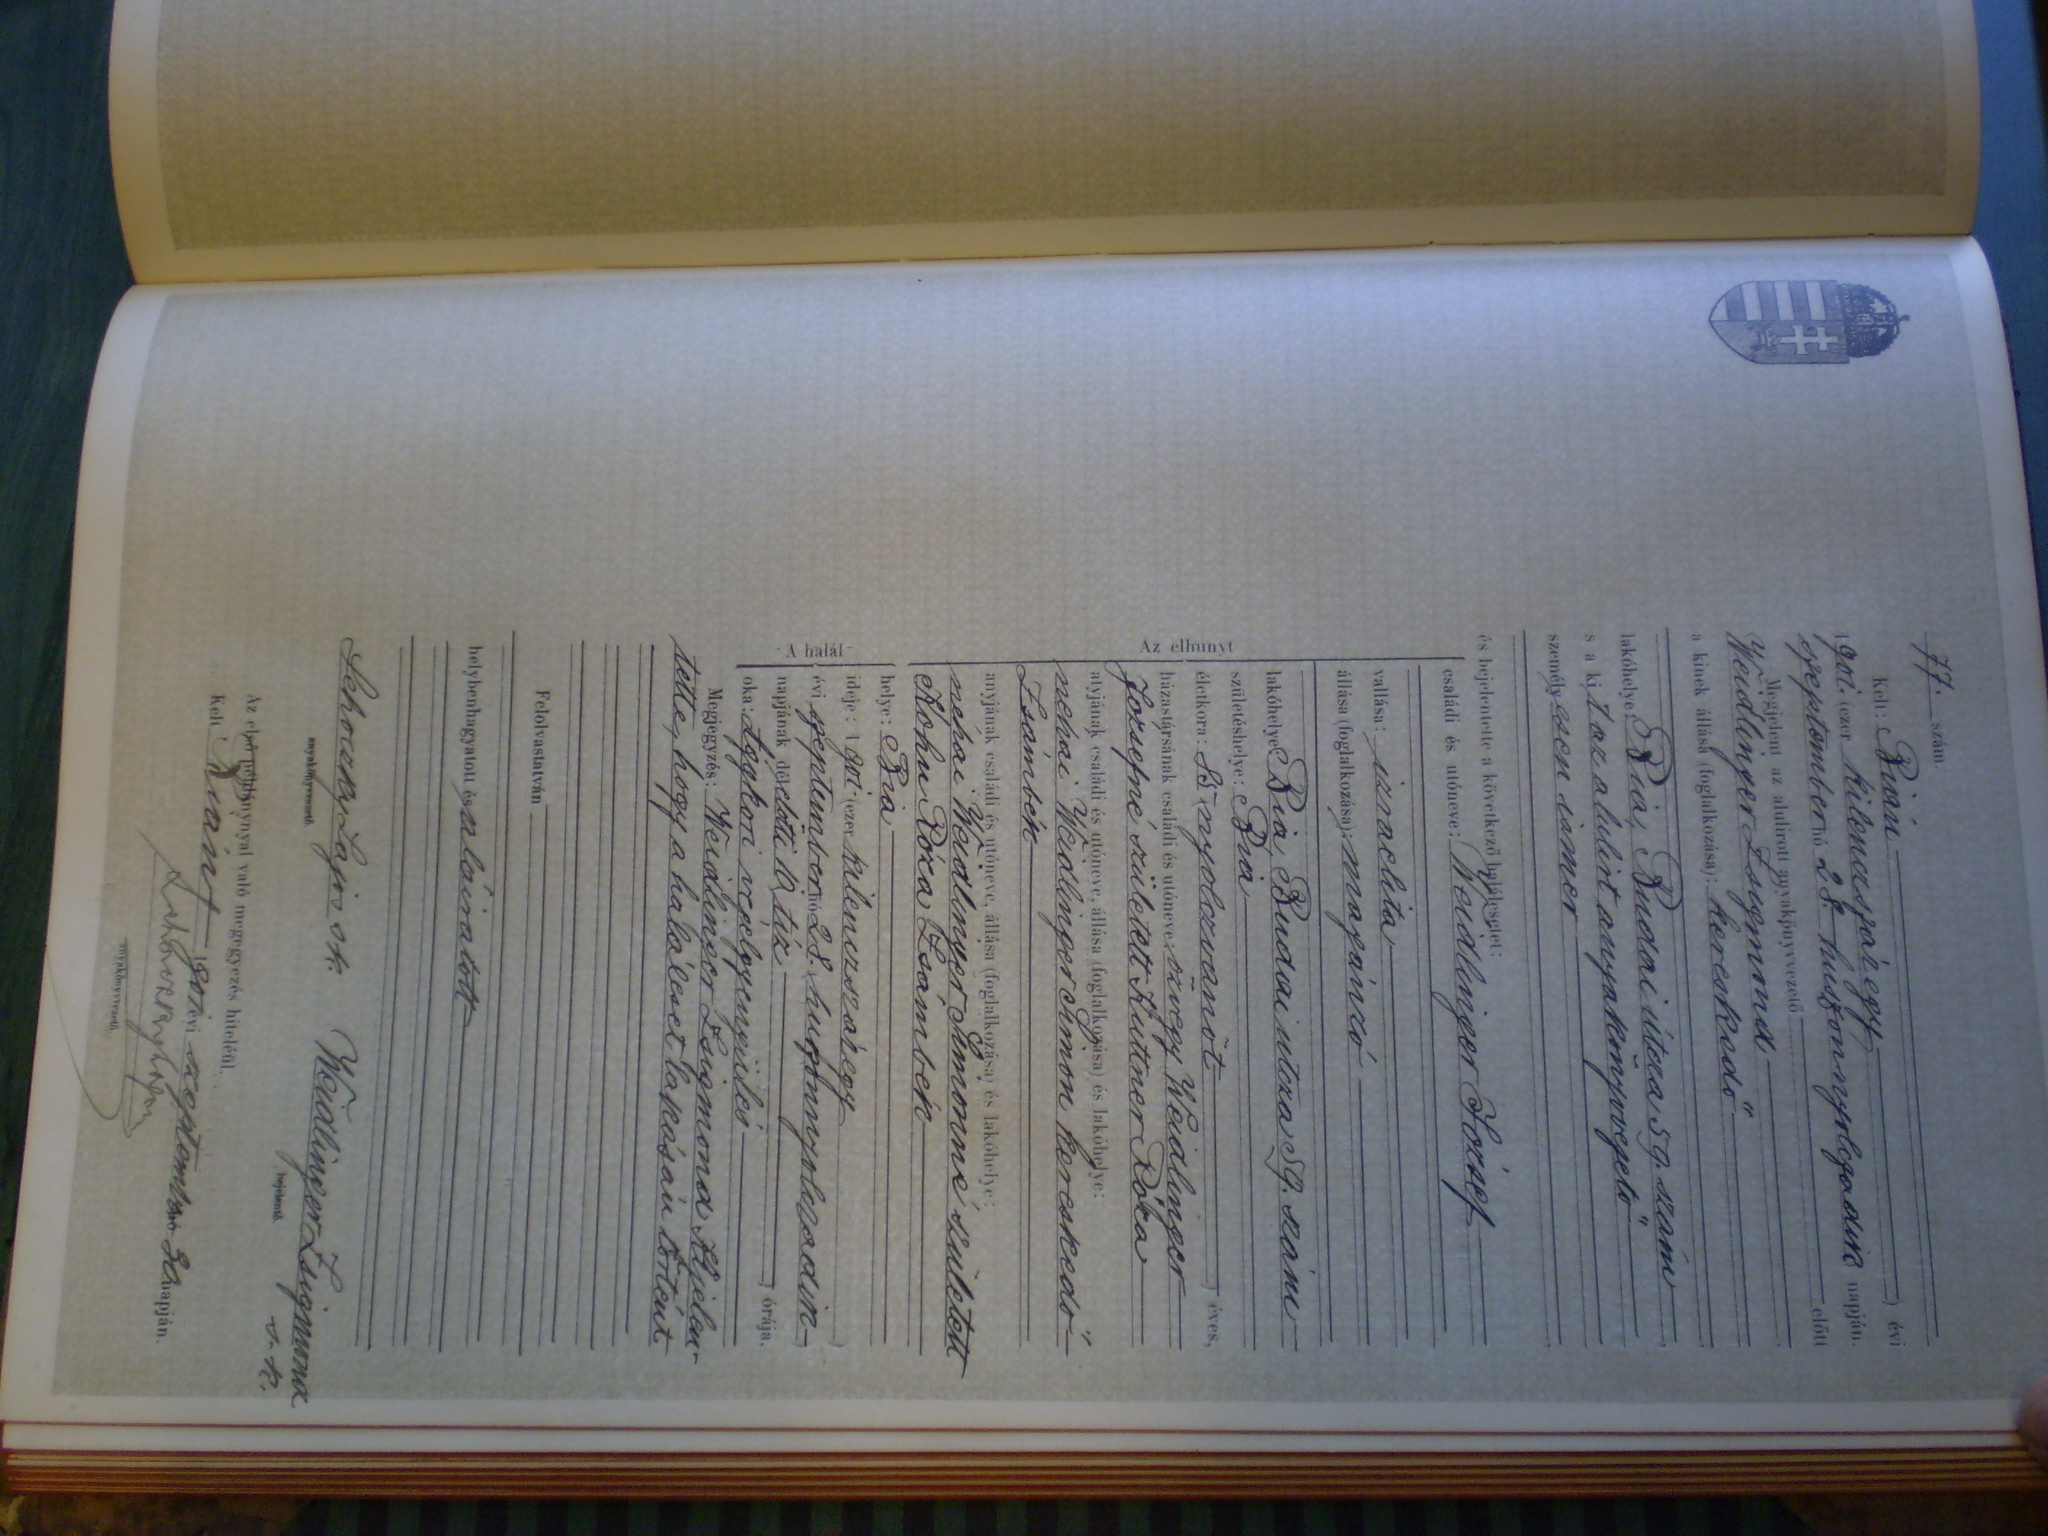 77. szám
Kelt: Bián 
1901. (ezer kilenczszázegy ) évi
szeptember hó 28. huszonnyolczadik napján.
Megjelent az alulirott anyakönyvvezető előtt
Weidlinger Zsigmond
a kinek állása (foglalkozása): kereskedő
lakóhelye: Bia, Budai útcza 59. szám
s a kit az alulirt anyakönyvvezető
személyesen ismer
és bejelentette a következő halálesetet:
Az elhunyt
családi és utóneve: Weidlinger József
vallása: izraelita
állása (foglalkozása): magánzó
lakóhelye Bia, Budai utcza 59. szám
születéshelye: Bia
életkora: 85 nyolczvanöt ) éves,
házastársának családi és utóneve: özvegy Weidlinger
Józsefné született Kuttner Róza
atyjának családi és utóneve, állása (foglalkozása) és lakóhelye:
néhai Weidlinger Simon kereskedő
Zsámbék
anyjának családi és utóneve, állása (foglalkozása) és lakóhelye:
néhai Weidlinger Simonné született
Kohn Róza Zsámbék
A halál
helye: Bia
ideje: 1901 (ezer kilenczszázegy )
évi szeptember hó 28. huszonnyolczadik )
napjának délelőtti 10 tíz ) órája.
oka: Aggkori végelgyengülés
Megjegyzés: Weidlinger Zsigmond kijelen-
tette, hogy a haláleset lakásán történt.
Felolvastatván
helybenhagyatott és aláiratott
Schoczky Lajos sk. Weidlinger Zsigmond
anyakönyvvezető. bejelentő. s. k.
Az első példánynyal való megegyezés hiteléül.
Kelt Bián 1901 évi szeptember hó 30 napján.
anyakönyvvezető.